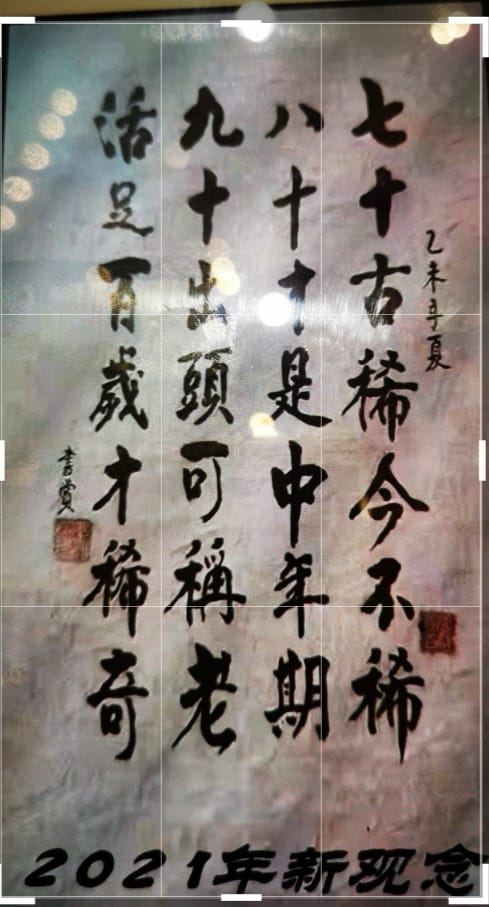 乙未年夏
七十古稀今不稀
八十才是中年期
九十出頭可稱老
活足百歲才稀奇
2021年新观念